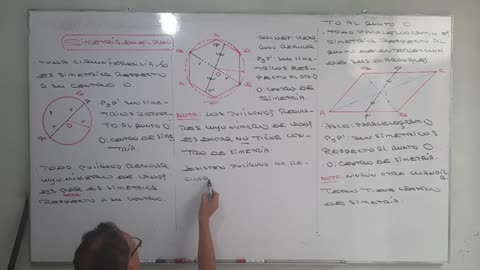 SIMETRÍA EN EL PLANO
TODA CIRCUNFERENCIA
ES SIMÉTRICA RESPECTO
A SU CENTRO O
P y P': SON SIME-
TRICOS RESPEC-
TO AL PUNTO O
O: CENTRO DE SIME-
TRÍA
TODO POLÍGONO REGULAR
CUYO NÚMERO DE LADOS
ES PAR ES SIMÉTRICO
RESPECTO A SU CENTRO.
GONO REGULAR
P y P': SON SIME-
TRICOS RES-
PECTO AL PTO O
O: CENTRO DE
SIMETRÍA.
NOTA: LOS POLÍGONOS REGULA-
RES CUYO NÚMERO DE LADOS
ES IMPAR NO TIENE CEN-
TRO DE SIMETRÍA.
¿EXISTEN POLÍGONO NO RE-
GULAR
TO AL PUNTO O
TODO PARALELOGRAMO ES
SIMÉTRICO RESPECTO AL
PUNTO DE INTERSECCIÓN
DE SUS DIAGONALES
A
B
C
D
O
ABCD: PARALELOGRAMO
P y P': SON SIMÉTRICOS
RESPECTO AL PUNTO O.
O: CENTRO DE SIMETRÍA.
NOTA: NINGÚN OTRO CUADRILÁ-
TERO TIENE CENTRO
DE SIMETRÍA.